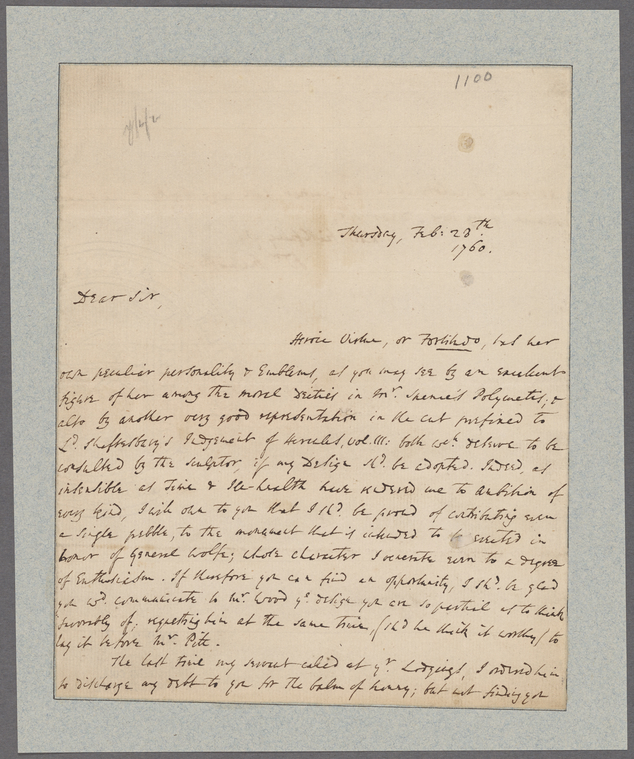 1100
Thursday, Feb: 28th
1760.
Dear Sir,
Heroic Virtue, or Fortitudo, has her
own peculiar personality & Emblems, as you may see by an excellent
figure of her among the moral Deities in Mr. Spence's Polymetis; &
also by another very good representation in the cut prefixed to
Ld. Shaftesbury's Judgement of Hercules, vol. III: both wch. deserve to be
consulted by the Sculptor, if my Design shd. be adopted. Indeed, as
insensible as Time & Ill-health have rendered me to ambition of
every kind, I will own to you that I shd. be proud of contributing even
a single pebble, to the monument that is intended to be erected in
honor of General Wolfe; whose character I venerate even to a degree
of Enthusiasm. If therefore you can find an opportunity, I shd. be glad
you wd. communicate to Mr. Wood ye. design you are so partial as to think
favorably of; requesting him at the same time, (shd. he think it worthy) to
lay it before Mr. Pitt.
The last time my servant called at yr. Lodgings, I ordered him
to discharge my debt to you for the balm of honey; but not finding you